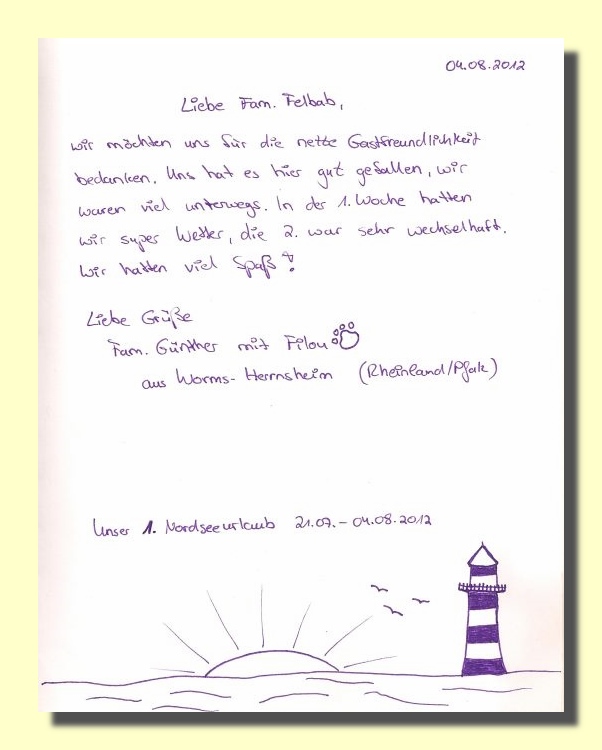 04.08.2012
Liebe Fam. Felbab,
wir möchten uns für die nette Gastfreundlichkeit
bedanken. Uns hat es hier gut gefallen, wir
waren viel unterwegs. In der 1. Woche hatten
wir super Wetter, die 2. war sehr wechselhaft.
Wir hatten viel Spaß!
Liebe Grüße
Fam. Günther mit Filou
aus Worms-Herrnsheim (Rheinland/Pfalz)
Unser 1. Nordseeurlaub 21.07.-04.08.2012